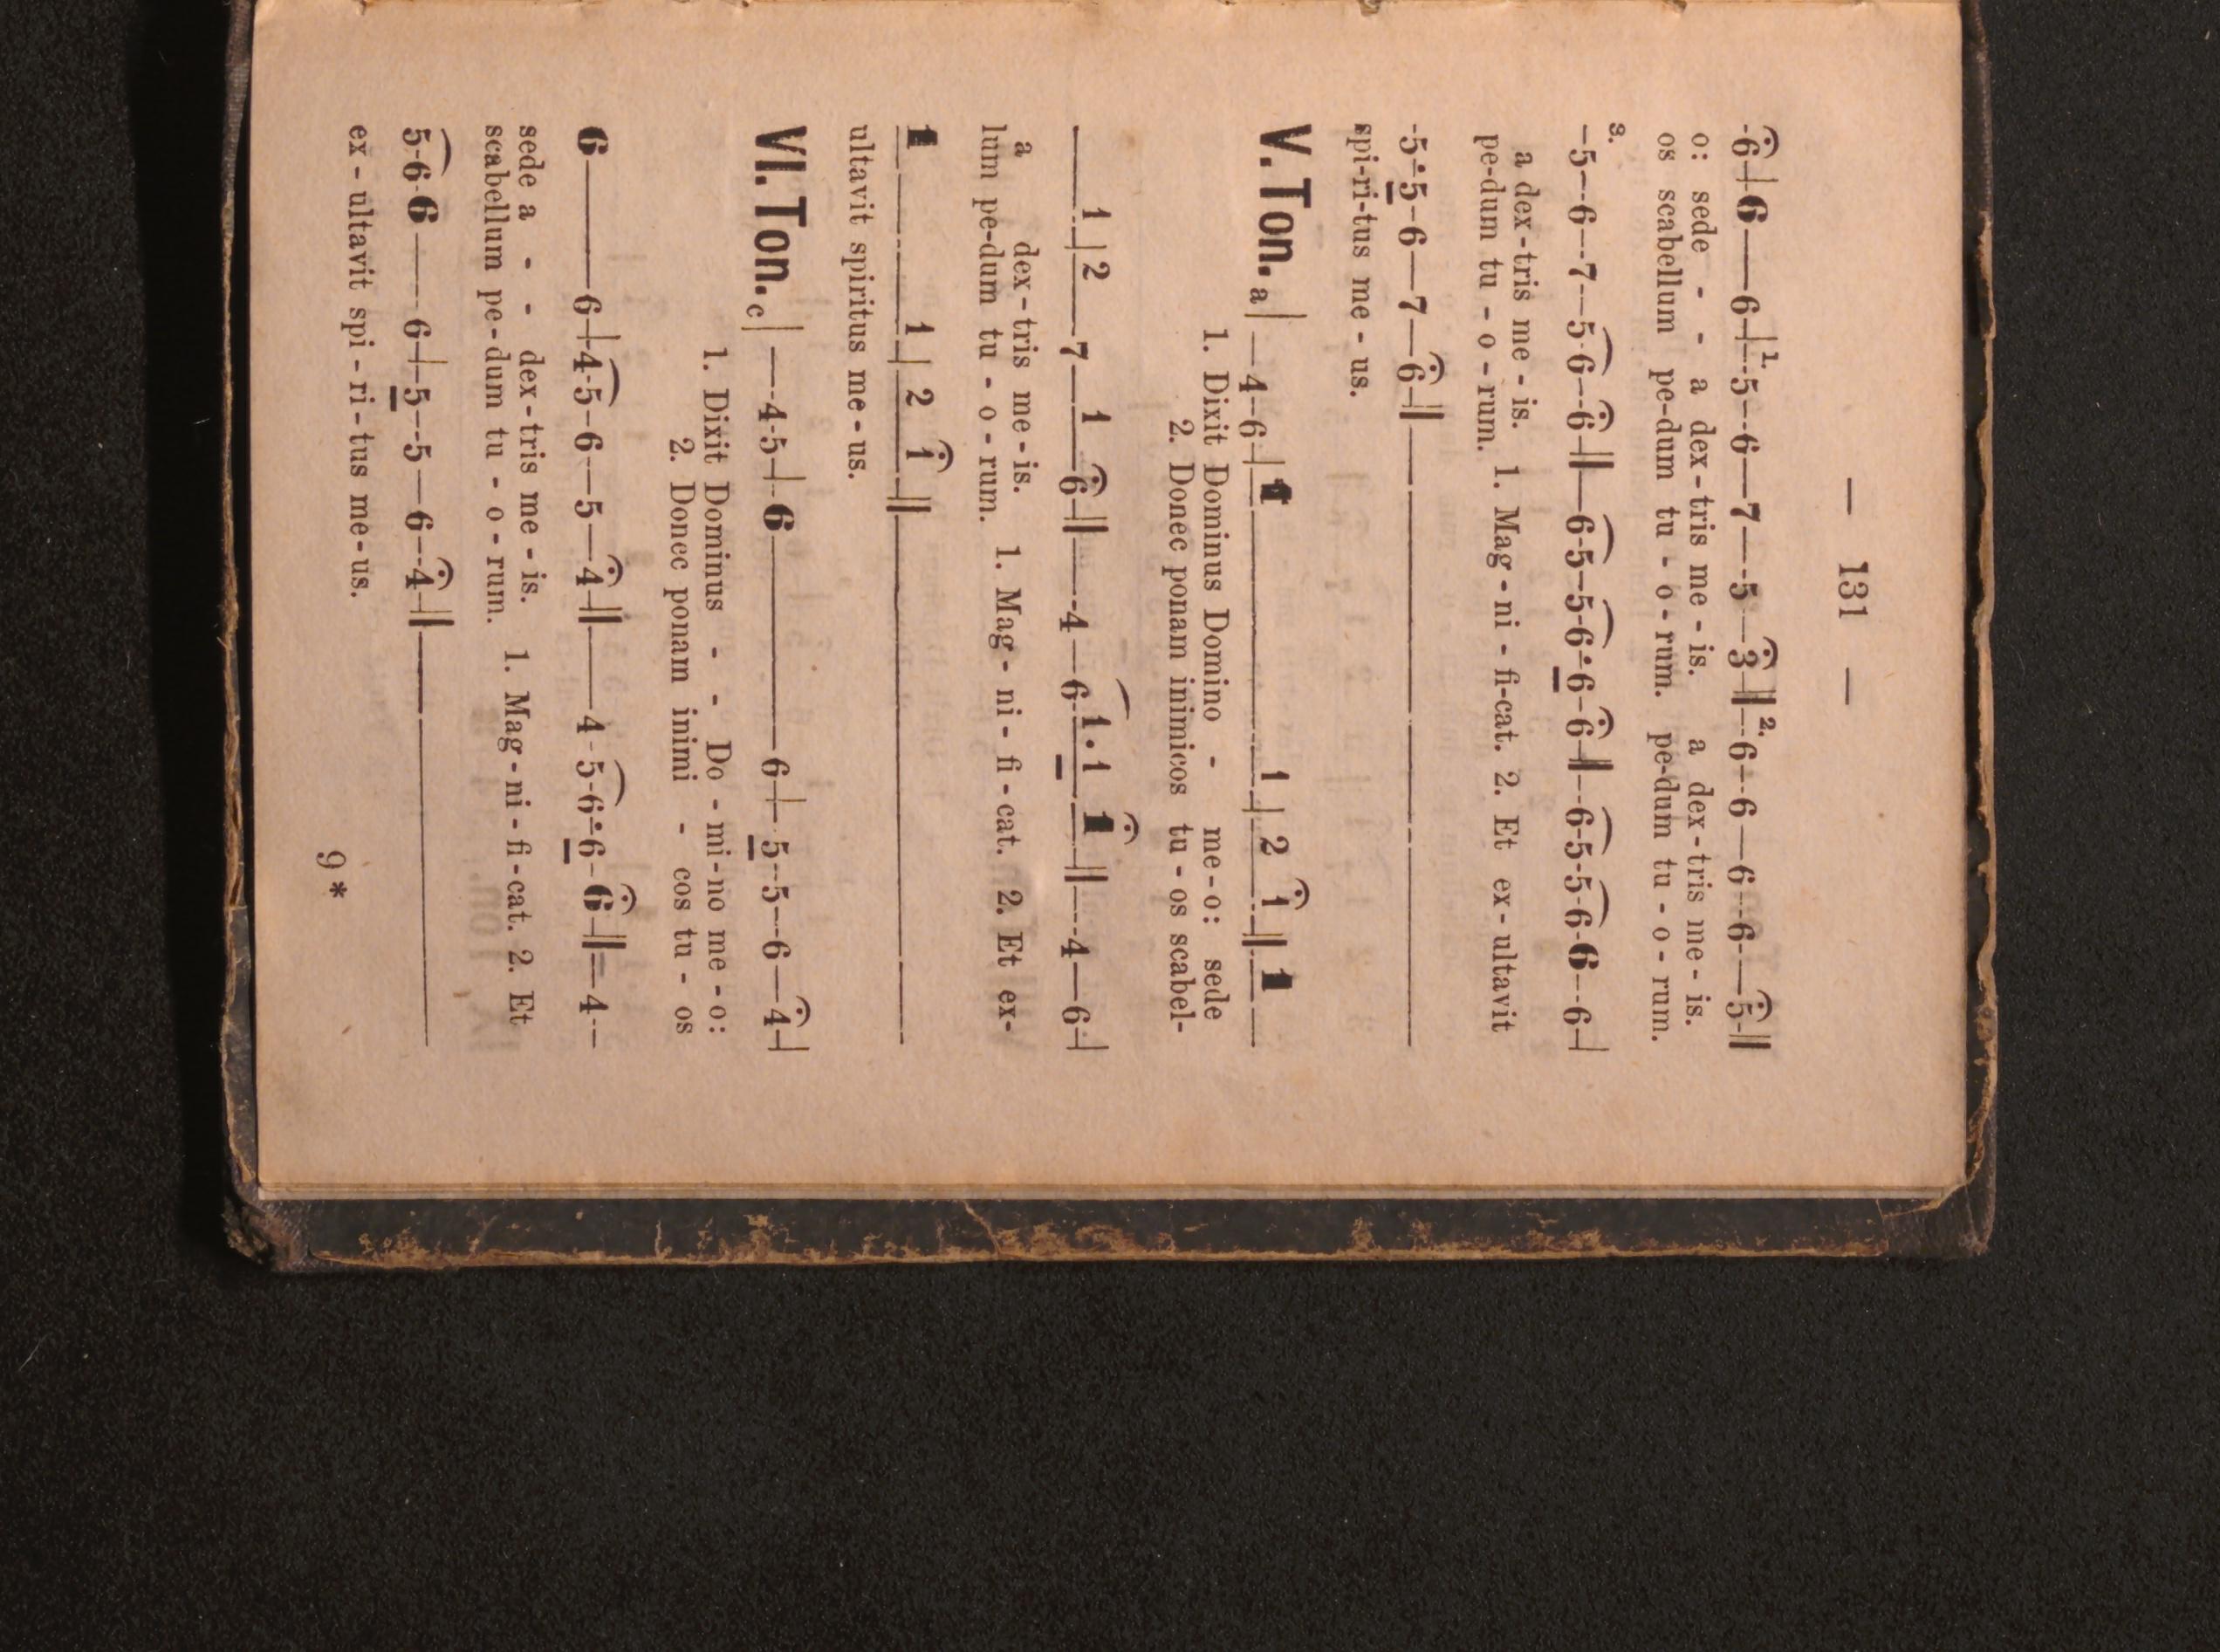 — 131 —
-6-|-6——6-|-1.-5--6—7—-5—3-||-2.-6--6—6--6-—5-||
o: sede - - a dex-tris me-is. a dex-tris me-is.
os scabellum pe-dum tu-o-rum. pe-dum tu-o-rum.
3.
—5--6--7--5-6--6-||—6-5-5-6·6-6-||--6-5-5-6-6--6-|
a dex-tris me-is. 1. Mag-ni-fi-cat. 2. Et ex-ultavit
pe-dum tu-o-rum.
-5·5-6—7—6-||
spi-ri-tus me-us.
V. Ton. a| —4-6-|-1———1-|-2 1-||-1—
1. Dixit Dominus Domino - me-o: sede
2. Donec ponam inimicos tu-os scabel-
——1-|-2——7—1—6-||——4—6-1·1 1-||--4—6-|
a dex-tris me-is. 1. Mag-ni-fi-cat. 2. Et ex-
lum pe-dum tu-o-rum.
1———1-|-2 1-||
ultavit spiritus me-us.
VI. Ton. c| —-4-5-|-6————6-|-5--5--6—4-|
1. Dixit Dominus - - Do-mi-no me-o:
2. Donec ponam inimi - cos tu-os
6———6-|-4-5-6—5—4-||——4-5-6·6-6-||—4--
sede a - - dex-tris me-is. 1. Mag-ni-fi-cat. 2. Et
scabellum pe-dum tu-o-rum.
5-6-6——6-|-5--5—6--4-||
ex-ultavit spi-ri-tus me-us.
9*